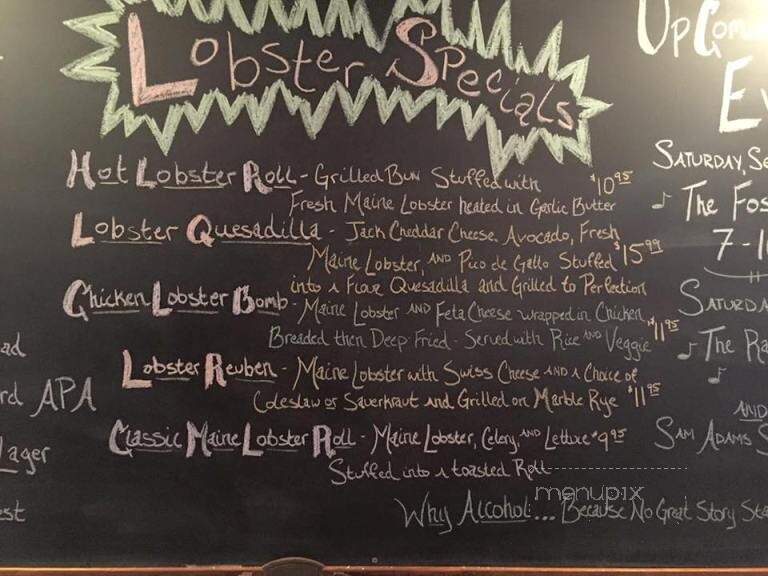 Lobster Specials
Hot Lobster Roll - Grilled Bun Stuffed with $10.95
Fresh Maine Lobster heated in Garlic Butter
Lobster Quesadilla - Jack Cheddar Cheese, Avocado, Fresh
Maine Lobster, AND Pico de Gallo Stuffed $15.99
into a Flour Quesadilla and Grilled to Perfection
Chicken Lobster Bomb - Maine Lobster AND Feta Cheese wrapped in Chicken,
Breaded then Deep Fried - Served with Rice AND Veggie $11.95
Lobster Reuben - Maine Lobster with Swiss Cheese AND a Choice of
Coleslaw or Sauerkraut and Grilled on Marble Rye $11.95
Classic Maine Lobster Roll - Maine Lobster, Celery, AND Lettuce $9.95
Stuffed into a toasted Roll
menupix
Why Alcohol... Because No Great Story Sta
ad
rd APA
Lager
est
UpComin
Ev
Saturday, Se
The Fos
7-1
Saturda
The Ra
AND
Sam Adams S